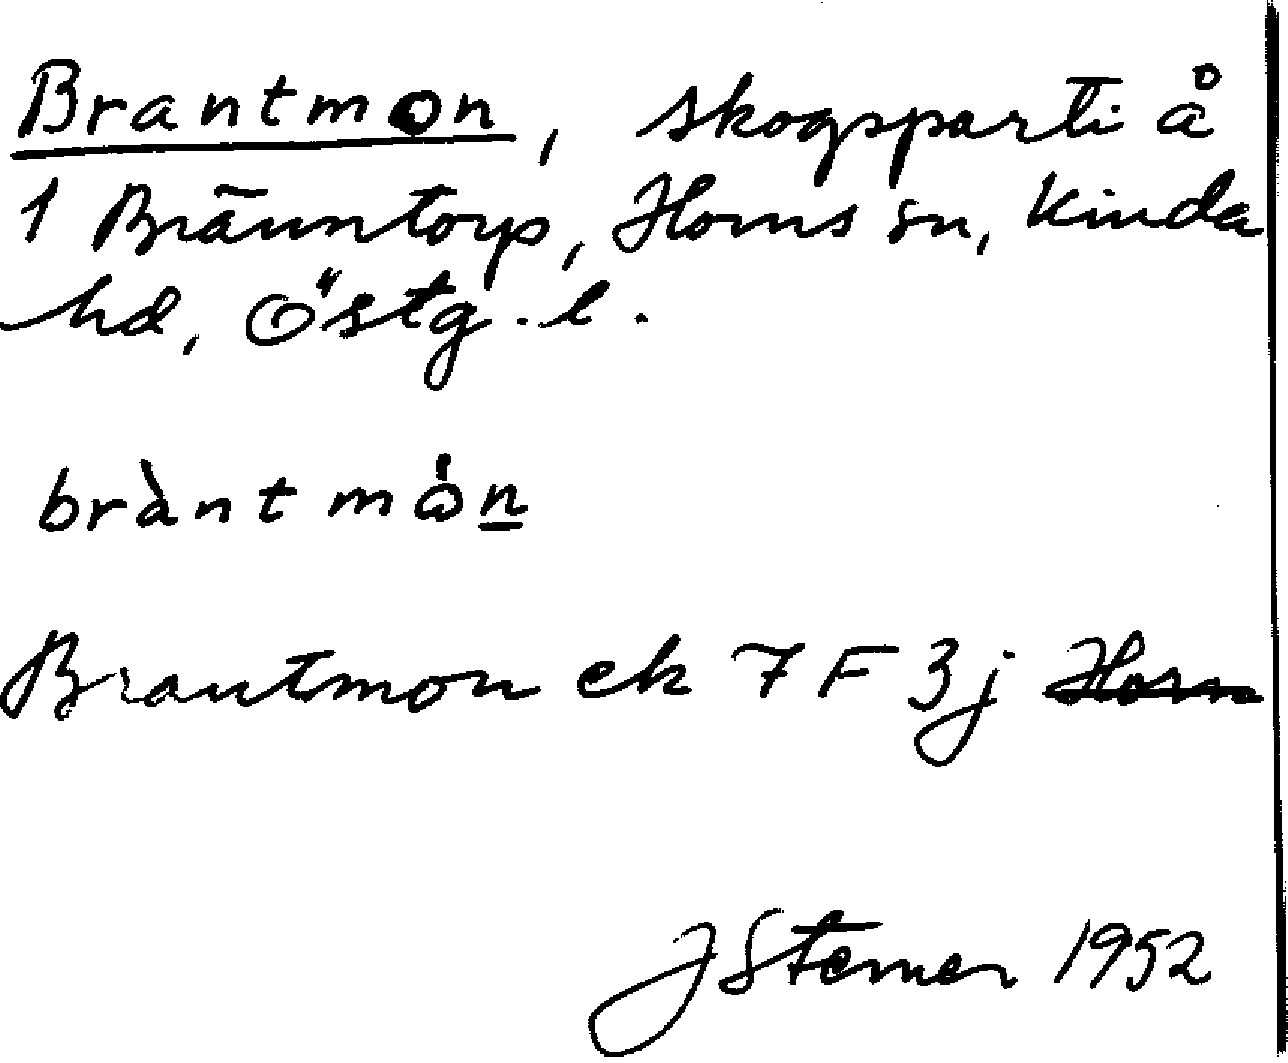 Brantmon, skogsparti å
1 Bränntorp, Horns sn, Kinda
hd, Östg. l.
bràntmȯ̀n
Brantmon ek 7 F 3j Horn
J Sterner 1952